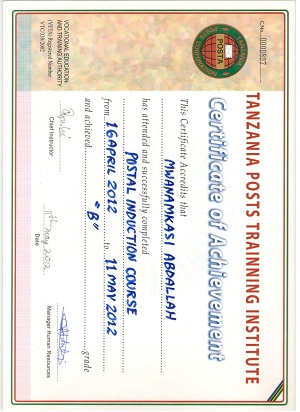 C.No. 0000807
TANZANIA POSTS TRAINNING INSTITUTE
Certificate of Achievement
This Certificate Accredits that
MWANAMKASI ABDALLAH
has attended and successfully completed
POSTAL INDUCTION COURSE
from 16 APRIL 2012 to 11 MAY 2012
and achieved "B" grade
VOCATIONAL EDUCATION
AND TRAINING AUTHORITY
(VETA) Registered Number
Chief Instructor
11th May 2012
Date
Manager Human Resources
POSTA